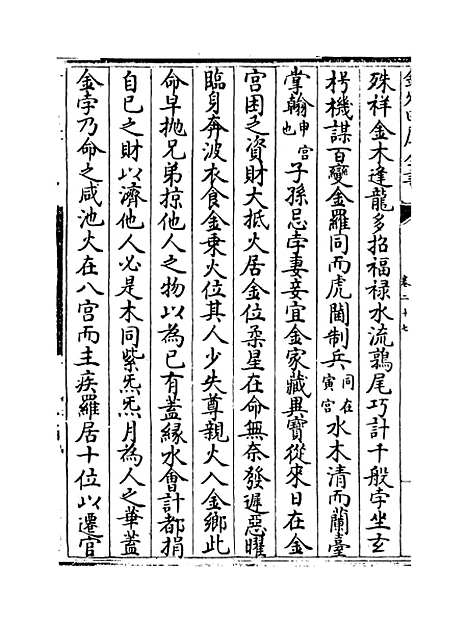 殊祥金木逢龍多招福禄水流鶉尾巧計千般孛坐玄
枵機謀百變金羅同而虎閫制兵同在寅宮水木清而蘭臺
掌翰申宮也子孫忌孛妻妾宜金家藏異寶從來日在金
宮困乏資財大抵火居金位柔星在命無奈發遲惡曜
臨身奔波衣食金乗火位其人少失尊親火入金鄉此
命早抛兄弟掠他人之物以為已有蓋縁水會計都捐
自已之財以濟他人必是木同紫炁炁月為人之華蓋
金孛乃命之咸池火在八宮而主疾羅居十位以遷官
卷二十七